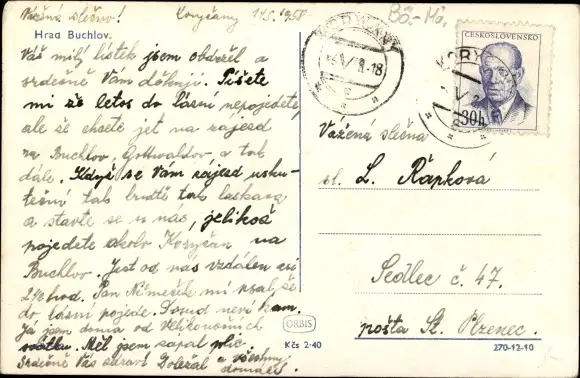 Vážená slečno! Koryčany 14.5.1958
Hrad Buchlov.
Váš milý lístek jsem obdržel a
srdečně Vám děkuji. Píšete
mi že letos do lásni nepojedete,
ale že chcete jet na zájezd
na Buchlov, Gottwaldov a tak
dále. Když se Vám zájezd usku-
teční tak buďte tak laskava
a stavte se u nás, jelikož
pojedete okolo Koryčan na
Buchlov. Jest od nás vzdálen asi
2½ hod. Pan Němeček mi psal, že
do lásni pojede. Dosud neví kam.
Já jsem doma od Velikonočních
svátku. Měl jsem zápal plic.
Srdečně Vás zdraví Doležal a všichni
domácí.
Bő.-Há.
KORYČANY
ČESKOSLOVENSKO
30h
Vážená slečna
sl. L. Řápková
Sedlec č. 47.
pošta St. Plzenec.
ORBIS
Kčs 2·40
270-12-10